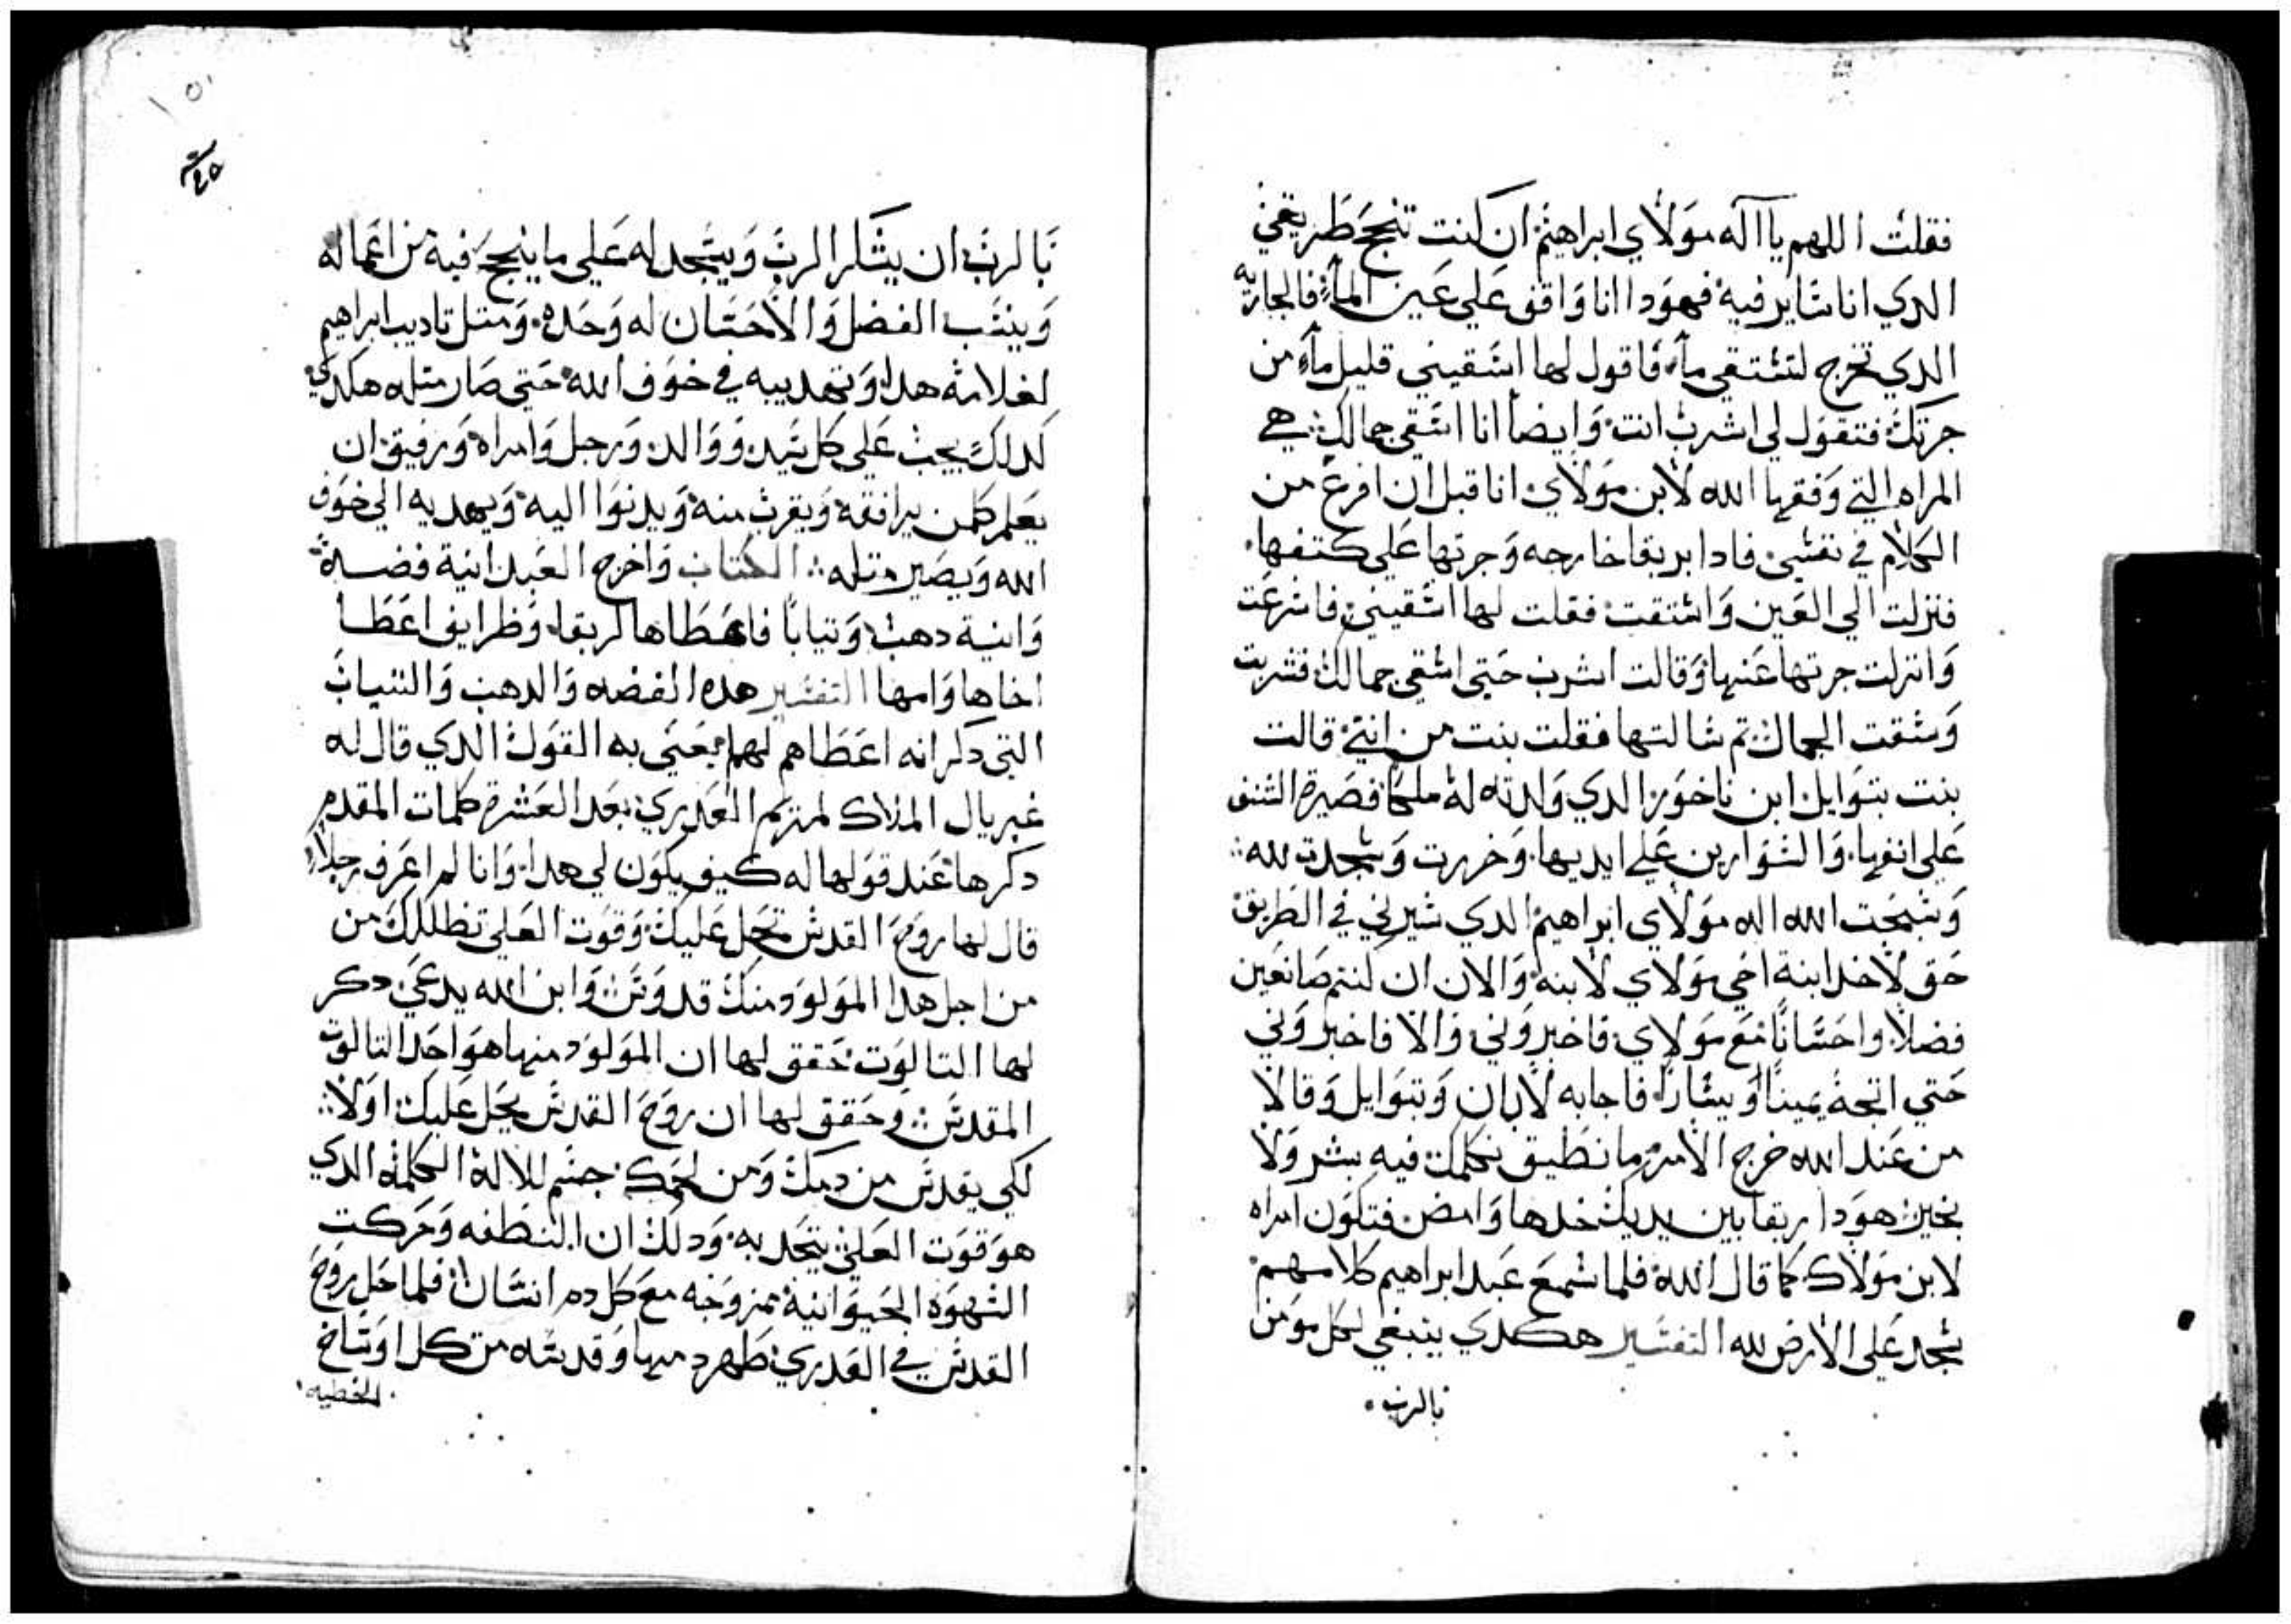 فقلت اللهم يا اله مولاي ابراهيم ان كنت تنجح طريقي
الدي انا ساير فيه فهودا انا واقف علي عين المآء فالجاريه
الدي تخرج لتستقي مآء فاقول لها اسقيني قليل مآء من
جرتك فتقول لي اشرب انت وايضا انا اسقي جمالك هي
المراه التي وفقها الله لابن مولاي انا قبل ان افرغ من
الكلام في نفسي فادا بريقا خارجه وجرتها علي كتفها
فنزلت الي العين واستقت فقلت لها اسقيني فاسرعت
وانزلت جرتها عنها وقالت اشرب حتي اسقي جمالك فشربت
وسقت الجمال تم سالتها فقلت بنت من انتي قالت
بنت بتوايل ابن ناخور الدي ولدته له ملكا فصيرة الشنف
علي انفها والسوارين علي ايديها وخررت وسجدت لله
وسبحت الله اله مولاي ابراهيم الدي سيرني في الطريق
حق لاخد ابنة اخي مولاي لابنه والان ان كنتم صانعين
فضلا واحسانا مع مولاي فاخبروني والا فاخبروني
حتي اتجه يمينا او يسارا فاجابه لابان وبتوايل وقالا
من عند الله خرج الامر وما نطيق نكلمك فيه بشر ولا
بخير هودا ربقا بين يديك خدها وامض فتكون امراه
لابن مولاك كما قال الله فلما سمع عبد ابراهيم كلامهم
سجد علي الارض لله التفسير هكدي ينبغي لكل مومن
بالرب
بالرب ان يشكر الرب ويسجد له علي ما ينجح فيه من اعماله
وينسب الفضل والاحسان له وحده ومتل تاديب ابراهيم
لغلامه هدا وتهديبه في خوف الله حتي صار متله هكدي
كدلك يجب علي كل سيد ووالد ورجل وامراه ورفيق ان
يعلم كلمن يرافقه ويقرب منه ويدنوا اليه ويهديه الي خوف
الله ويصير متله الكتاب واخرج العبد انية فضة
وانية دهب وتيابا فاعطاها لربقا وظرايف اعطا
اخاها وامها التفسير هده الفضه والدهب والتياب
التي دكر انه اعطاهم لهم يعني به القول الدي قال له
غبريال الملاك لمريم العدري بعد العشرة كلمات المقدم
دكرها عند قولها له كيف يكون لي هدا وانا لم اعرف رجلا
قال لها روح القدس تحل عليك وقوت العلي تظللك من
من اجل هدا المولود منك قدوس وابن الله يدعي دكر
لها التالوت حقق لها ان المولود منها هو احد التالوت
المقدس وحقق لها ان روح القدس يحل عليك اولا
لكي يقدس من دمك ومن لحمك جسم للاله الكلمه الدي
هو قوت العلي يتحد به ودلك ان النطفه وحركت
الشهوه الحيوانيه ممزوجه مع كل دم انسان فلما حل روح
القدس في العدري طهر دمها وقدسه من كل اوساخ
الخطيه